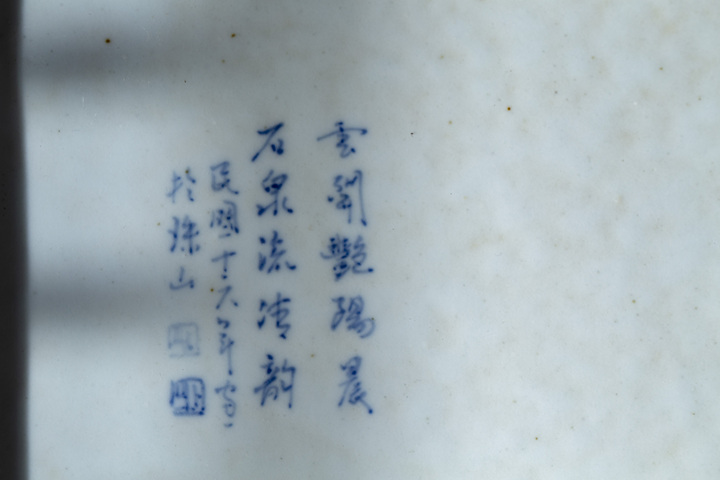 雲開艷陽晨
石泉流清韵
民國十六年
於珠山